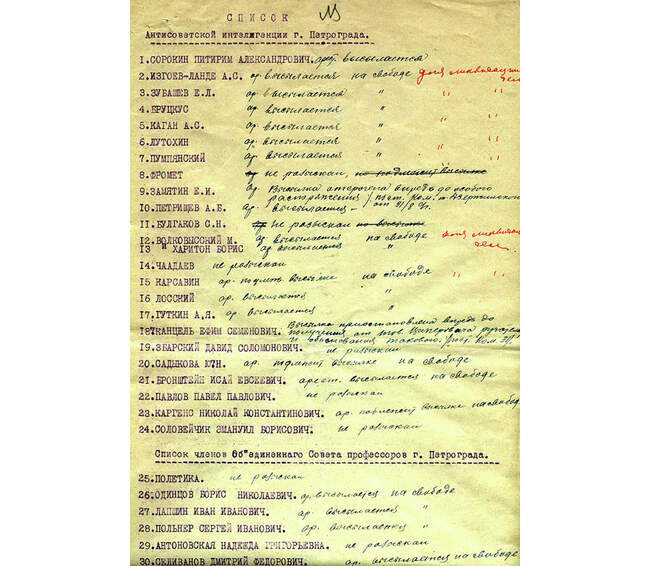 СПИСОК
Антисоветской интеллигенции г. Петрограда.
1.СОРОКИН ПИТИРИМ АЛЕКСАНДРОВИЧ. ар. высылается
2.ИЗГОЕВ-ЛАНДЕ А.С. ар высылается на свободе для ликвидации дел
3.ЗУБАШЕВ Е.Л. ар. высылается " " "
4.БРУЦКУС ар. высылается "
5.КАГАН А.С. ар. высылается " " "
6.ЛУТОХИН ар. высылается "
7.ПУМПЯНСКИЙ ар. высылается " " "
8.ФРОМЕТ не разыскан, но подлежит высылке
9.ЗАМЯТИН Е.И. ар. Высылка отсрочена впредь до особого распоряжения
10.ПЕТРИЩЕВ А.Б. ар. высылается -
11.БУЛГАКОВ С.Н. не разыскан
12.ВОЛКОВЫССКИЙ Н. ар высылается на свободе для ликвидации дел.
13 и ХАРИТОН БОРИС ар высылается "
14.ЧААДАЕВ не разыскан
15 КАРСАВИН ар. подлеж высылке на свободе " "
16 ЛОССКИЙ ар. высылается "
17.ГУТКИН А,Я. ар высылается "
18.КАНЦЕЛЬ ЕФИМ СЕМЕНОВИЧ. Высылка приостановлена впредь до получения от тов.
19.ЗБАРСКИЙ ДАВИД СОЛОМОНОВИЧ. не разыскан
20.САДЫКОВА Ю?Н. ар. подлежит высылке на свободе
21.БРОНШТЕЙН ИСАЙ ЕВСЕЕВИЧ. арест. высылается на свободе
22.ПАВЛОВ ПАВЕЛ ПАВЛОВИЧ. не разыскан
23.КАРГЕНС НИКОЛАЙ КОНСТАНТИНОВИЧ. ар. подлежит высылке на свободе
24.СОЛОВЕЙЧИК ЭМАНУИЛ БОРИСОВИЧ. не разыскан
Список членов Об"единенного Совета профессоров г. Петрограда.
25.ПОЛЕТИКА. не разыскан
26.ОДИНЦОВ БОРИС НИКОЛАЕВИЧ. ар. высылается на свободе
27.ЛАПШИН ИВАН ИВАНОВИЧ. ар. высылается "
28.ПОЛЬНЕР СЕРГЕЙ ИВАНОВИЧ. ар. высылается "
29.АНТОНОВСКАЯ НАДЕЖДА ГРИГОРЬЕВНА. не разыскан
30.СЕЛИВАНОВ ДМИТРИЙ ФЕДОРОВИЧ. ар. высылается на свободе